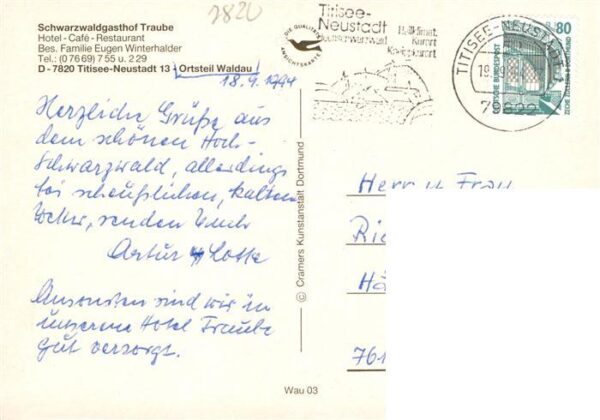 2820
Schwarzwaldgasthof Traube
Hotel - Café - Restaurant
Bes. Familie Eugen Winterhalder
Tel.: (0 76 69) 7 55 u. 2 29
D - 7820 Titisee-Neustadt 13 - Ortsteil Waldau
18.9.1994
Herzliche Grüße aus
dem schönen Hoch-
schwarzwald, allerdings
bei scheußlichem, kalten
Wetter, senden Euch
Artur u Lotte
Ansonsten sind wir in
unserem Hotel Traube
gut versorgt.
DIE QUALITÄTS
ANSICHTSKARTE
© Cramers Kunstanstalt Dortmund
Wau 03
Titisee-
Neustadt
Hochschwarzwald
Heilklimat.
Kurort
Kneippkurort
TITISEE-NEUSTADT 1
79822
80
DEUTSCHE BUNDESPOST
ZECHE ZOLLERN II DORTMUND
Herr u Frau
Ri
Hä
761